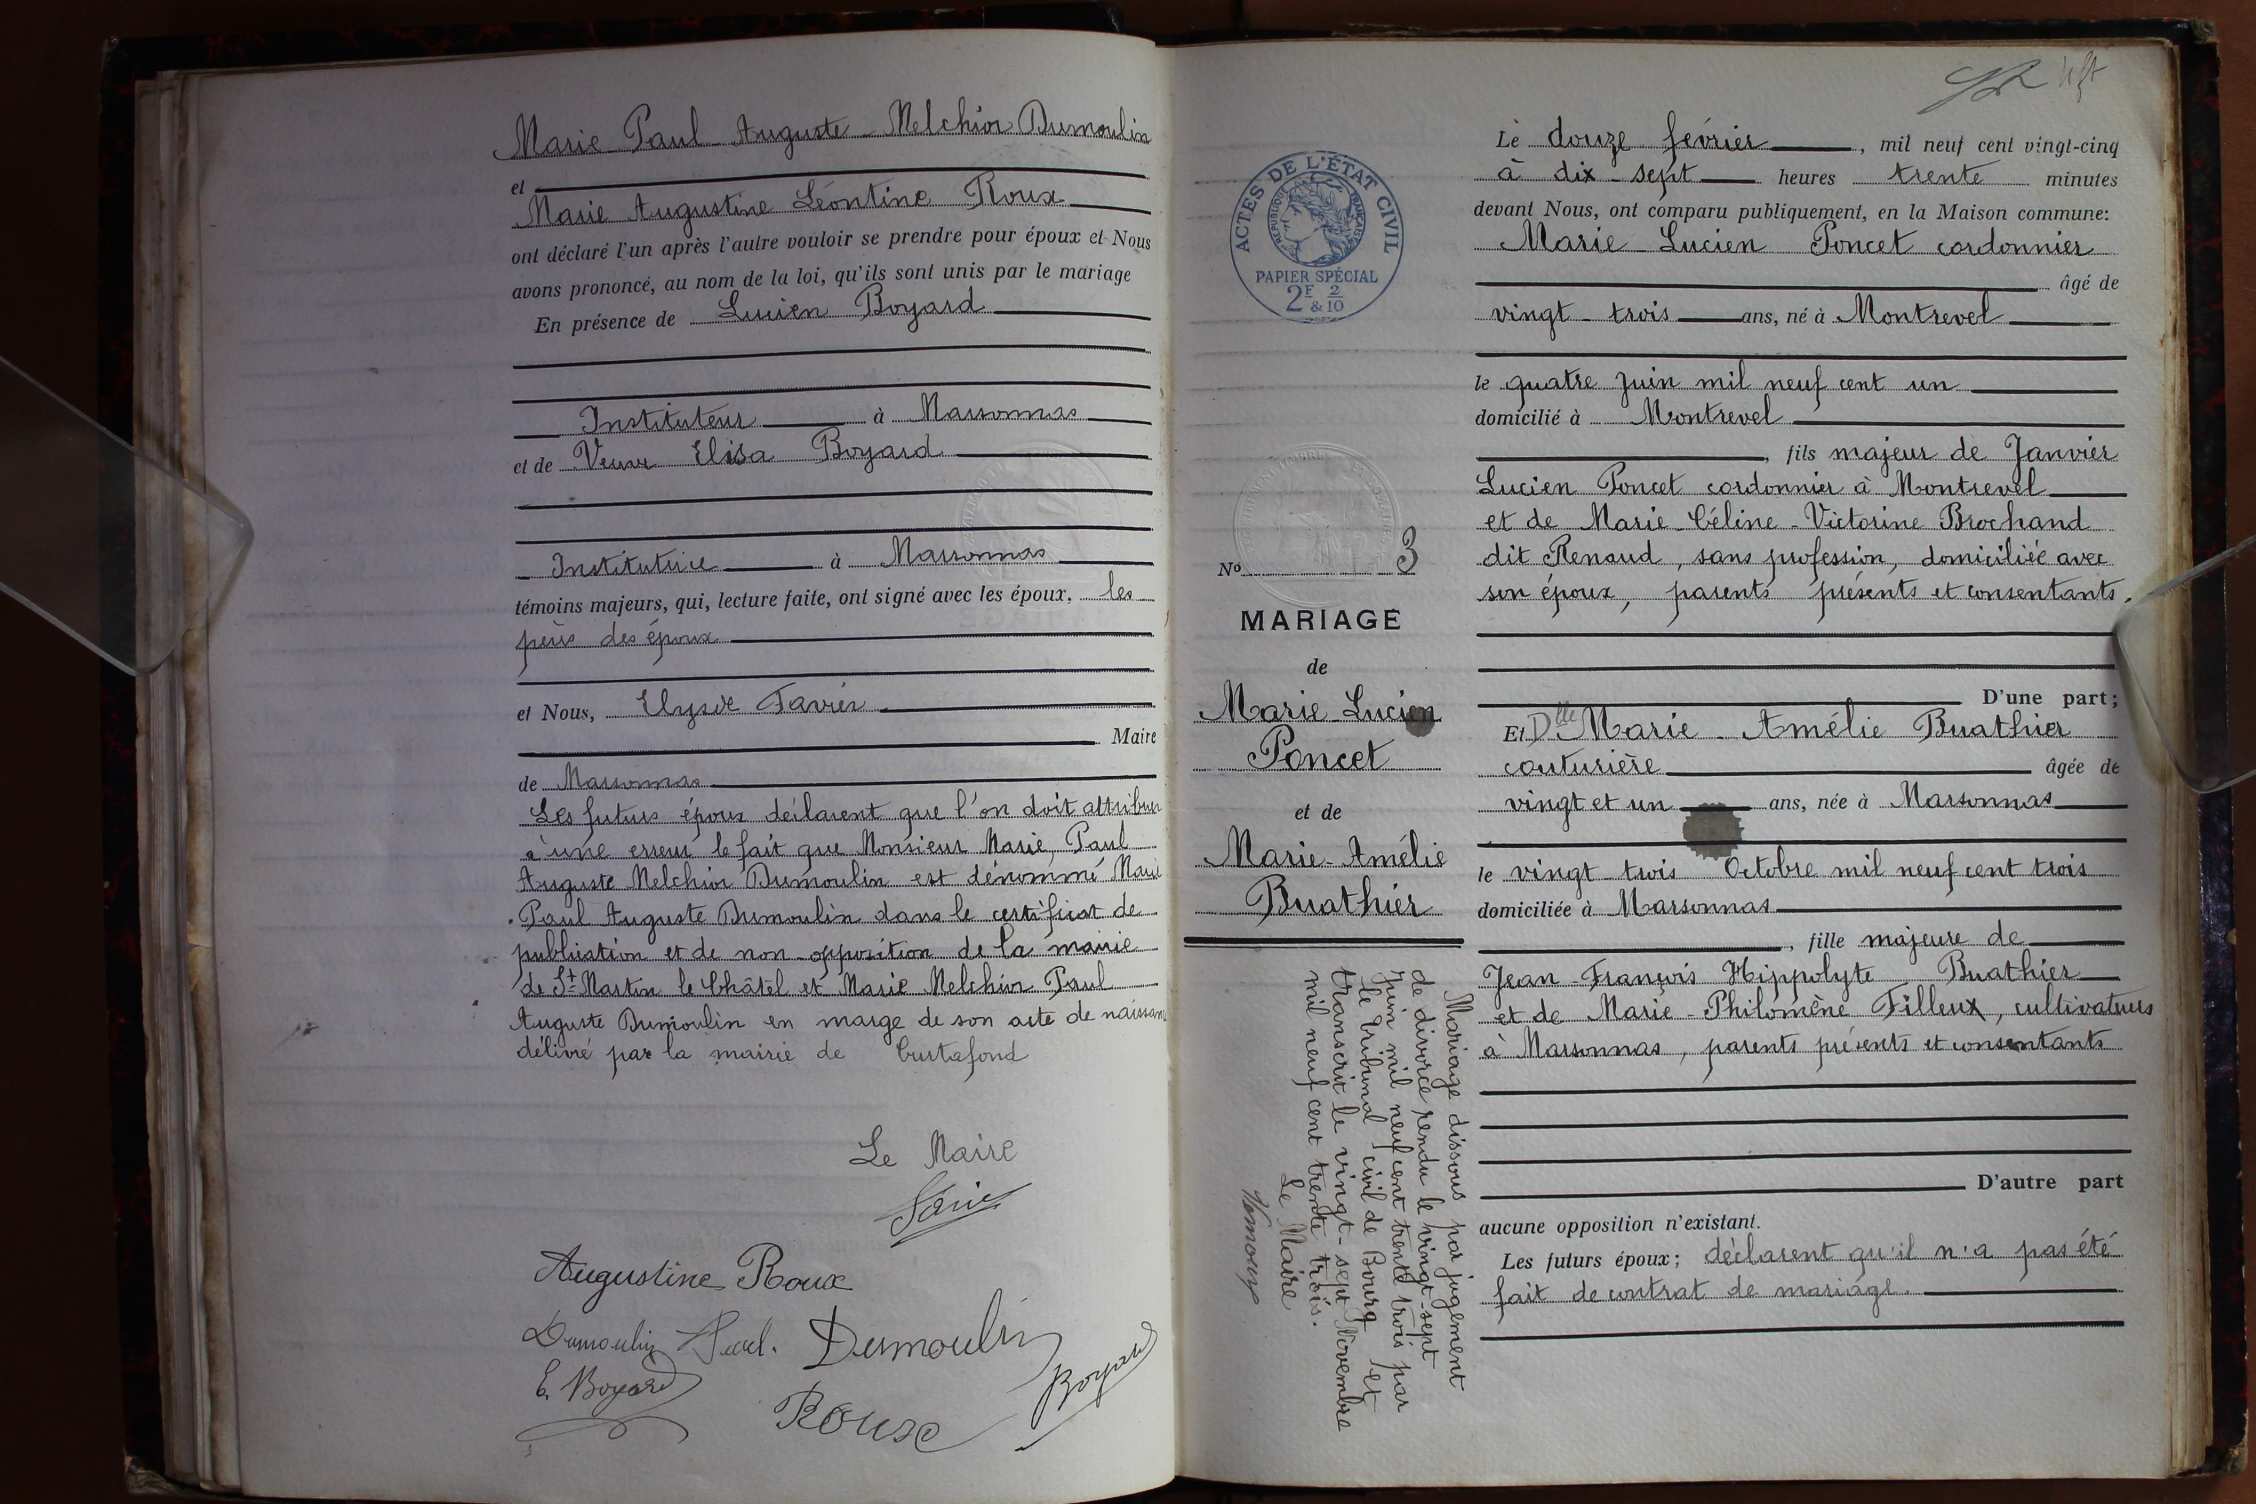 Marie Paul Auguste Melchior Dumoulin
et
Marie Augustine Léontine Roux
ont déclaré l'un après l'autre vouloir se prendre pour époux et Nous
avons prononcé, au nom de la loi, qu'ils sont unis par le mariage
En présence de Lucien Boyard
Instituteur à Marsonnas
et de Veuve Elisa Boyard
Institutrice à Marsonnas
témoins majeurs, qui, lecture faite, ont signé avec les époux, les
pères des époux
et Nous, Elysée Favier
Maire
de Marsonnas
Les futurs époux déclarent que l'on doit attribuer
à une erreur le fait que Monsieur Marie, Paul
Auguste Melchior Dumoulin est dénommé Marie
Paul Auguste Dumoulin dans le certificat de
publication et de non-opposition de la mairie
de St Martin le Châtel et Marie Melchior Paul
Auguste Dumoulin en marge de son acte de naissance
délivré par la mairie de Curtafond
Le Maire
Augustine Roux
Dumoulin Paul. Dumoulin
E. Boyard
Roux
Boyard
ACTES DE L'ÉTAT CIVIL
RÉPUBLIQUE FRANÇAISE
PAPIER SPÉCIAL
2F & 2/10
No 3
MARIAGE
de
Marie Lucien
Poncet
et de
Marie-Amélie
Buathier
Mariage dissous par jugement
de divorce rendu le vingt-sept
Juin mil neuf cent trente trois par
le tribunal civil de Bourg et
transcrit le vingt-sept Novembre
mil neuf cent trente trois.
Le Maire
Le douze février, mil neuf cent vingt-cinq
à dix-sept heures trente minutes
devant Nous, ont comparu publiquement, en la Maison commune:
Marie Lucien Poncet cordonnier
âgé de
vingt-trois ans, né à Montrevel
le quatre juin mil neuf cent un
domicilié à Montrevel
, fils majeur de Janvier
Lucien Poncet cordonnier à Montrevel
et de Marie-Céline-Victorine Brochand
dit Renaud, sans profession, domiciliée avec
son époux, parents présents et consentants.
D'une part;
Et Dlle Marie-Amélie Buathier
couturière âgée de
vingt et un ans, née à Marsonnas
le vingt-trois Octobre mil neuf cent trois
domiciliée à Marsonnas
, fille majeure de
Jean-François Hippolyte Buathier
et de Marie-Philomène Filleux, cultivateurs
à Marsonnas, parents présents et consentants
D'autre part
aucune opposition n'existant.
Les futurs époux; déclarent qu'il n'a pas été
fait de contrat de mariage.